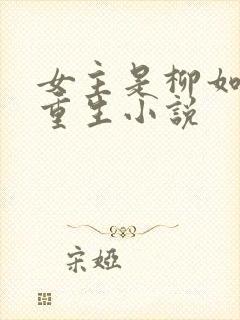 女主是柳如
重生小说
宋婭